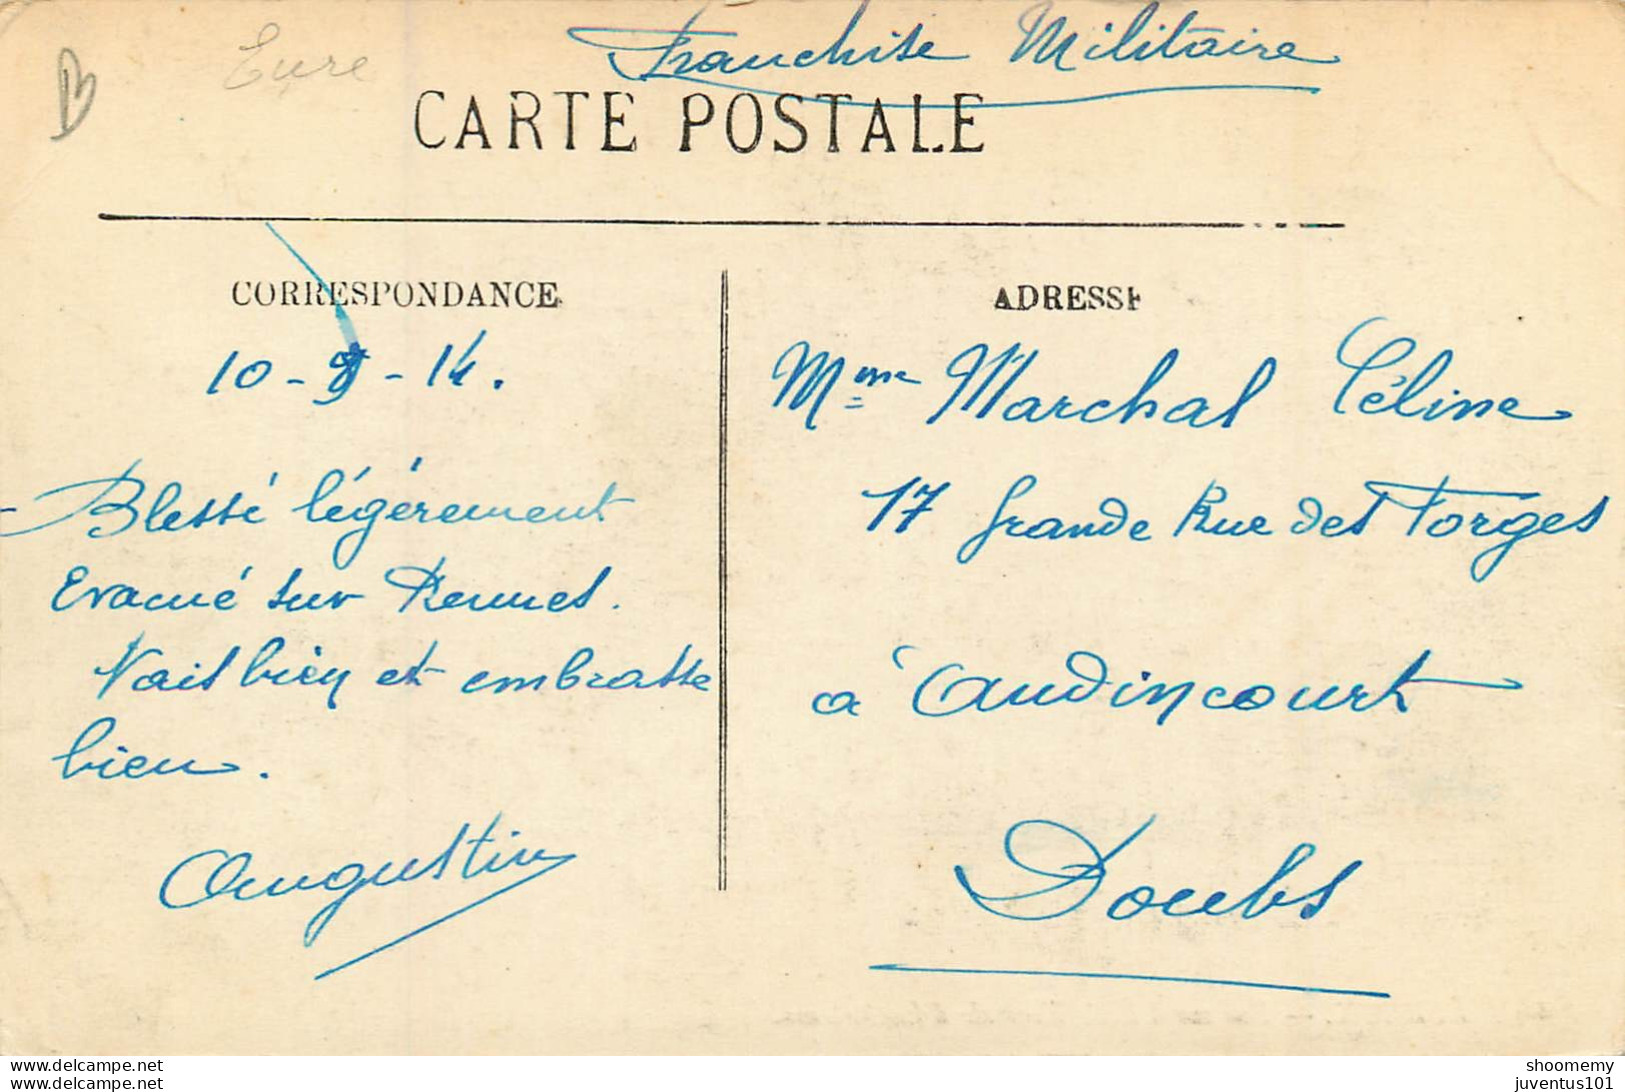 Eure
Franchise Militaire
CARTE POSTALE
CORRESPONDANCE
ADRESSE
10 - 9 - 14.
Blessé légérement
Evacué sur Rennes.
Vais bien et embrasse
bien.
Augustin
Mme Marchal Céline
17 Grande Rue des Forges
à Audincourt
Doubs
delcampe.net
delcampe.net
shoomemy
juventus101